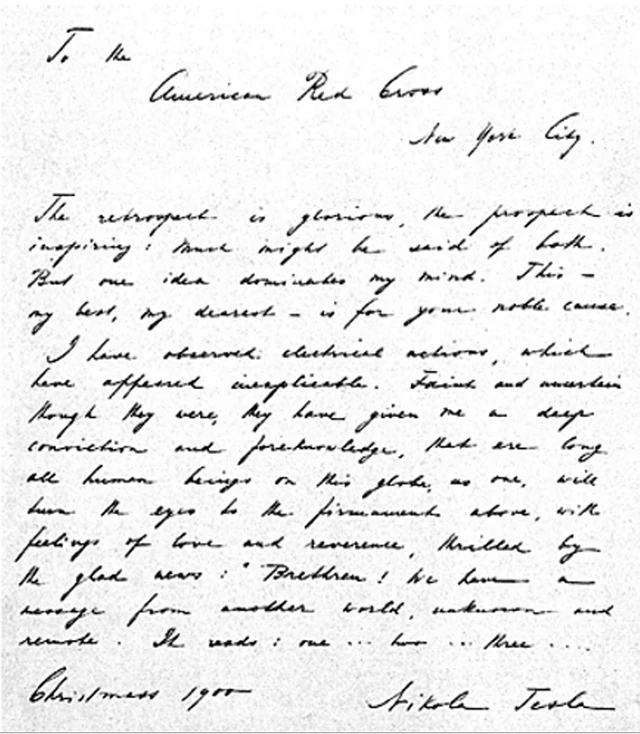 To the
American Red Cross
New York City.
The retrospect is glorious, the prospect is
inspiring: Much might be said of both.
But one idea dominates my mind. This –
my best, my dearest – is for your noble cause.
I have observed electrical actions, which
have appeared inexplicable. Faint and uncertain
though they were, they have given me a deep
conviction and foreknowledge, that ere long
all human beings on this globe, as one, will
turn the eyes to the firmament above, with
feelings of love and reverence, thrilled by
the glad news: "Brethren! We have a
message from another world, unknown and
remote. It reads: one ... two ... three ....
Christmas 1900 Nikola Tesla